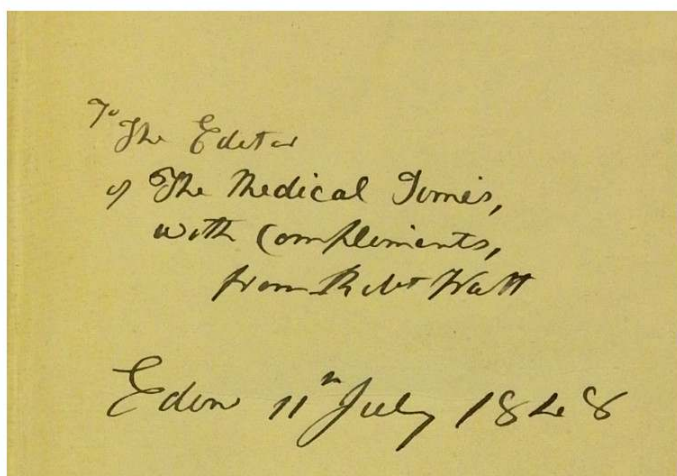 To
The Editor
of The Medical Times,
with Compliments,
from Robt Watt
Edinr 11th July 1848